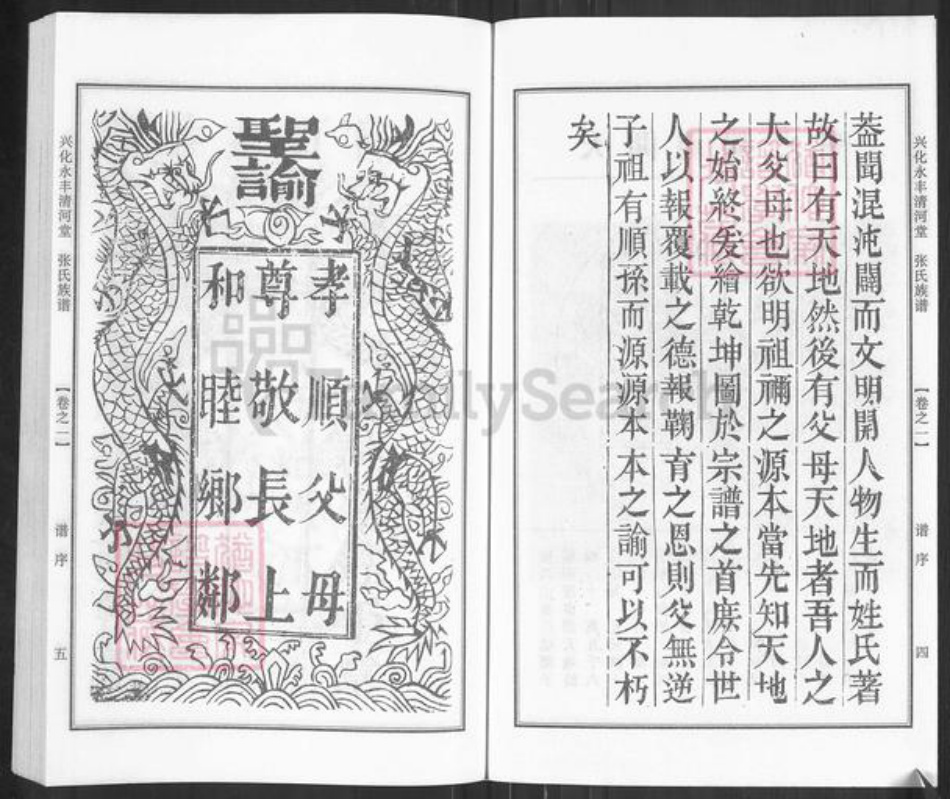 兴化永丰清河堂 张氏族谱
【卷之一】
谱序
四
葢聞混沌闢而文明開人物生而姓氏著
故曰有天地然後有父母天地者吾人之
大父母也欲明祖禰之源本當先知天地
之始終爰繪乾坤圖於宗譜之首庶令世
人以報覆載之德報鞠育之恩則父無逆
子祖有順孫而源源本本之諭可以不朽
矣
聖諭
孝順父母
尊敬長上
和睦鄉鄰
兴化永丰清河堂 张氏族谱
【卷之一】
谱序
五
FamilySearch